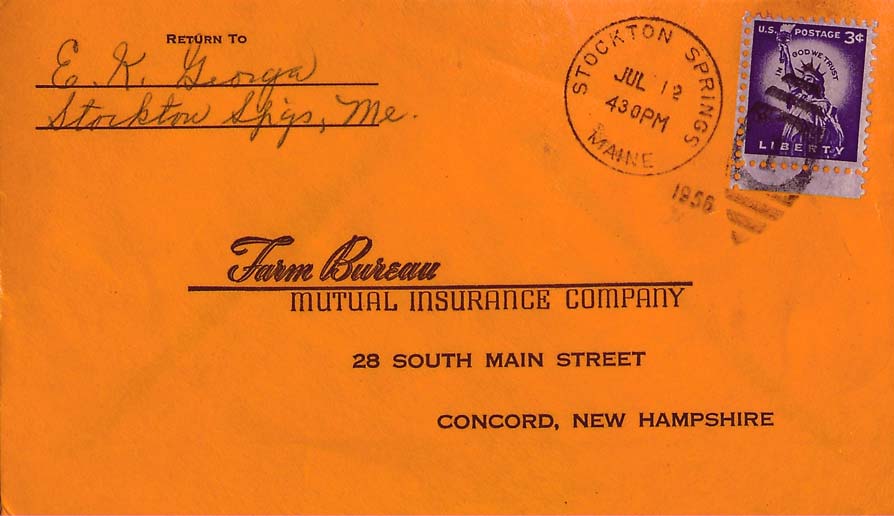 RETURN TO
E. K. Georga
Stockton Spgs, Me.
STOCKTON SPRINGS
JUL 12
430PM
MAINE
1956
U.S. POSTAGE 3¢
IN GOD WE TRUST
LIBERTY
Farm Bureau
MUTUAL INSURANCE COMPANY
28 SOUTH MAIN STREET
CONCORD, NEW HAMPSHIRE